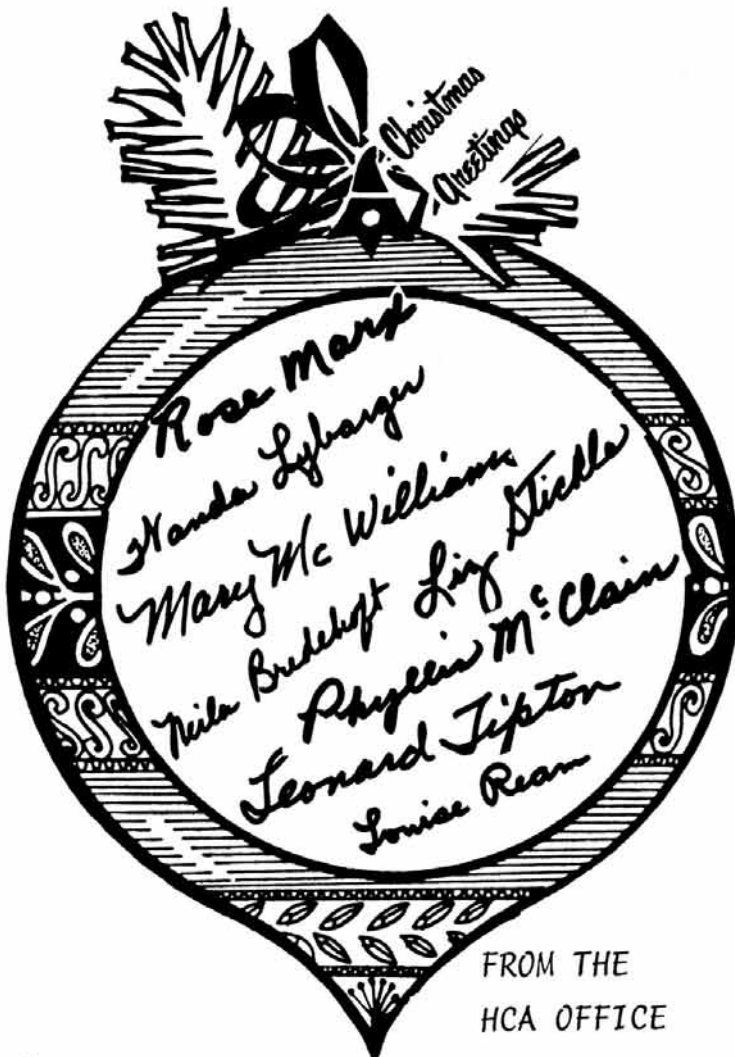 Christmas
Greetings
Rose Marx
Wanda Lybarger
Mary McWilliams
Neila Bredehoft Liz Stickle
Phyllis McClain
Leonard Tipton
Louise Ream
FROM THE
HCA OFFICE